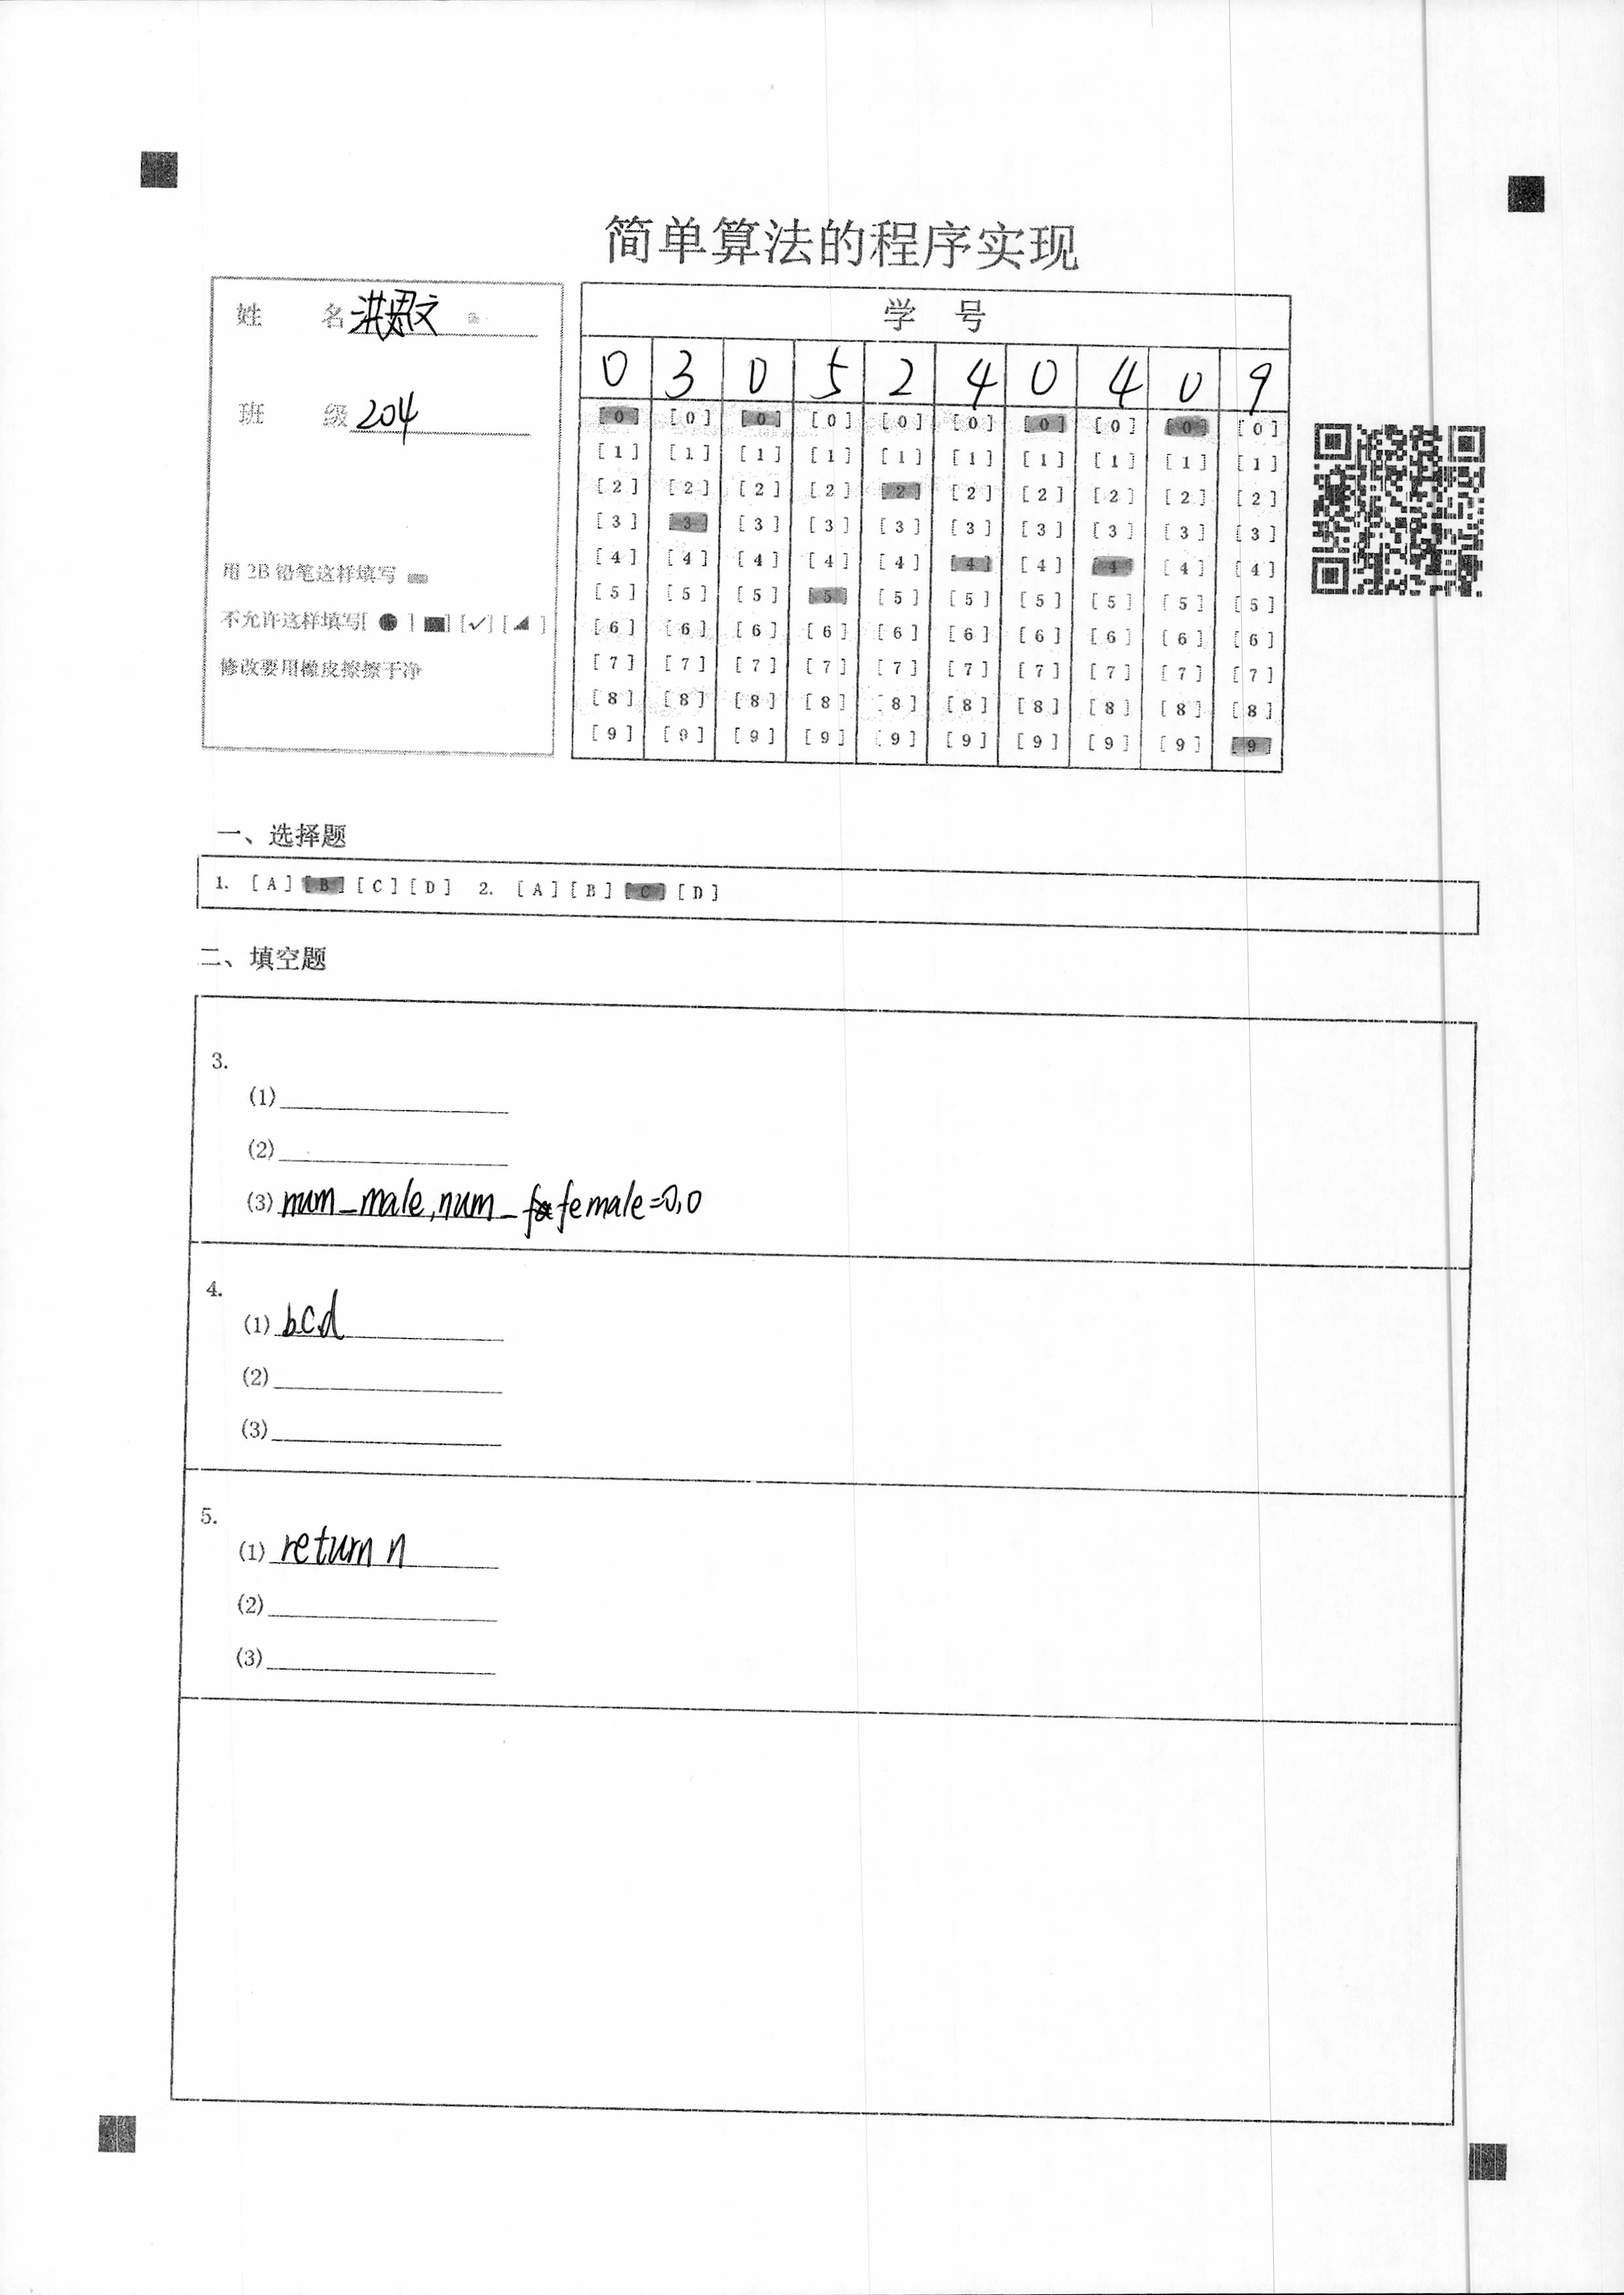 简单算法的程序实现
姓 名 洪君文
班 级 204
用 2B 铅笔这样填写
不允许这样填写[ ● ] ■] [✓] [◢ ]
修改要用橡皮擦擦干净
学 号
0 3 0 5 2 4 0 4 0 9
[0] [0] [0] [0] [0] [0] [0] [0] [0] [0]
[1] [1] [1] [1] [1] [1] [1] [1] [1] [1]
[2] [2] [2] [2] [2] [2] [2] [2] [2] [2]
[3] [3] [3] [3] [3] [3] [3] [3] [3] [3]
[4] [4] [4] [4] [4] [4] [4] [4] [4] [4]
[5] [5] [5] [5] [5] [5] [5] [5] [5] [5]
[6] [6] [6] [6] [6] [6] [6] [6] [6] [6]
[7] [7] [7] [7] [7] [7] [7] [7] [7] [7]
[8] [8] [8] [8] [8] [8] [8] [8] [8] [8]
[9] [9] [9] [9] [9] [9] [9] [9] [9] [9]
一、选择题
1. [A] [B] [C] [D] 2. [A] [B] [C] [D]
二、填空题
3.
(1)
(2)
(3) num_male,num_female=0,0
4.
(1) bcd
(2)
(3)
5.
(1) return n
(2)
(3)